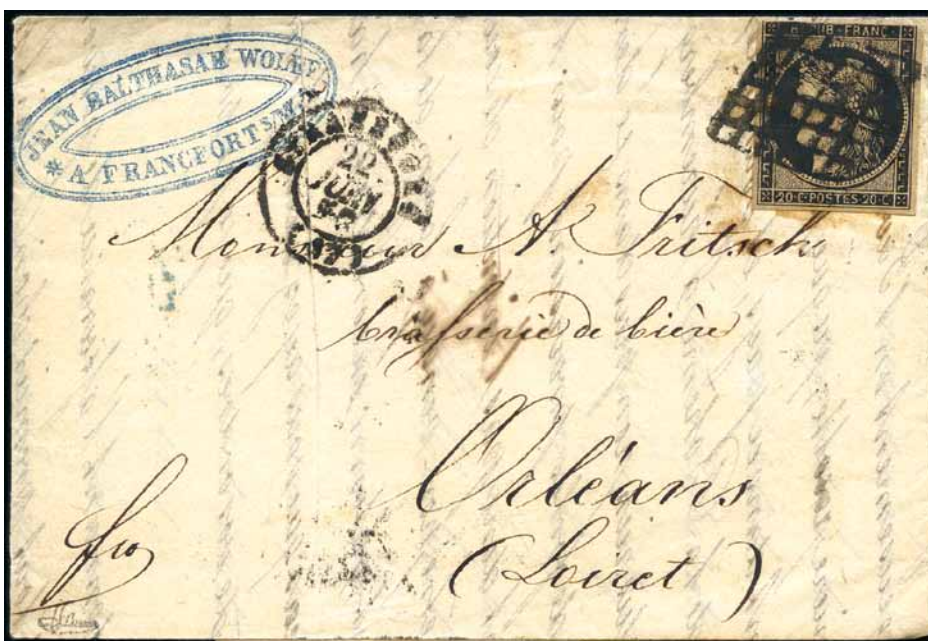 JEAN BALTHASAR WOLFF
* A FRANCFORT S/M.
22
JUIN
50
REPUB FRANC
20·C·POSTES·20·C
Monsieur A. Fritsch
brasserie de bière
Orléans
(Loiret)
fco